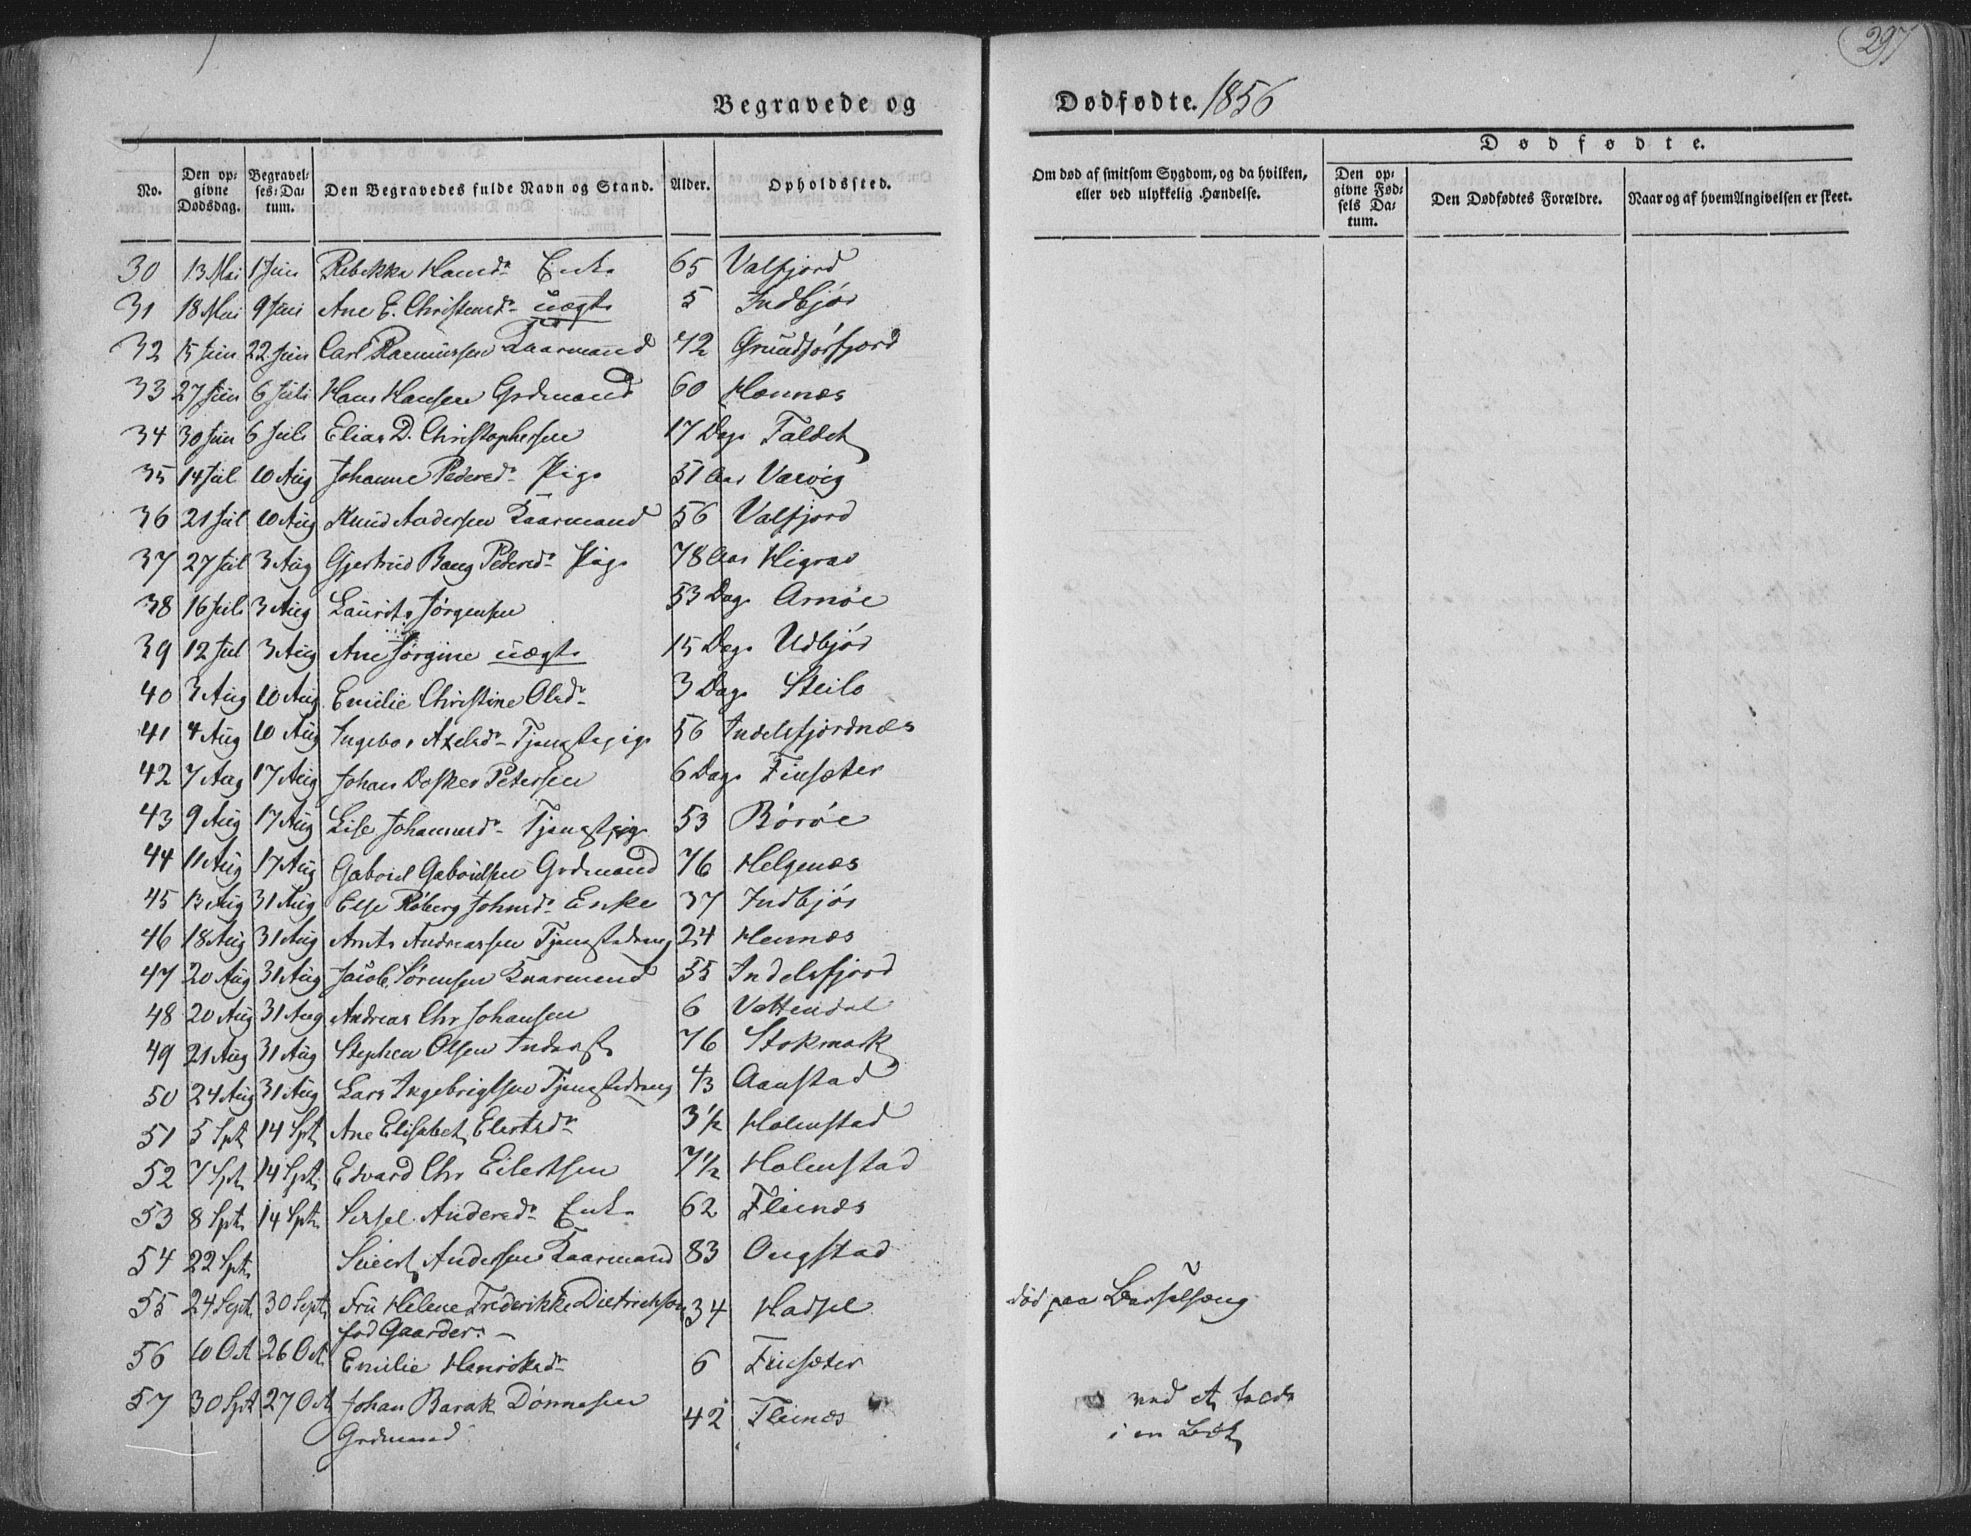 297
Begravede og Dødfødte. 1856
Dødfødte.
No. Den opgivne Dødsdag. Begravelses-Datum. Den Begravedes fulde Navn og Stand. Alder. Opholdssted. Om død af smitsom Sygdom, og da hvilken, eller ved ulykkelig Hændelse. Den opgivne Fødsels Datum. Den Dødfødtes Forældre. Naar og af hvem Angivelsen er skeet.
30 13 Mai 1 Juni Rebekka Hansdr Enke 65 Valfjord
31 18 Mai 9 Juni Ane E. Christensdr uægte 5 Indbjør
32 15 Juni 22 Juni Carl Rasmussen Kaarmand 42 Grundførfjord
33 27 Juni 6 Juli Hans Hansen Grdmand 60 Hennæs
34 30 Juni 6 Juli Elias D. Christophersen 17 Dage Faldet
35 14 Jul 10 Aug Johanne Pedersdr Pige 51 Aar Varvig
36 21 Jul 10 Aug Knud Andersen Kaarmand 56 Valfjord
37 27 Jul 3 Aug Gjertrud Bang Pedersdr Pige 78 Aar Higrav
38 16 Juli 3 Aug Laurits Jørgensen 53 Dage Arnøe
39 12 Jul 3 Aug Ane Jørgine uægte 15 Dage Udbjør
40 3 Aug 10 Aug Emilie Christine Olsdr 3 Dage Steilo
41 4 Aug 10 Aug Ingebor Axelsdr Tjenestepige 56 Indelsfjordnæs
42 7 Aug 17 Aug Johan Petersen 6 Dage Finsæter
43 9 Aug 17 Aug Lise Johannesdr Tjenestpige 53 Børøe
44 11 Aug 17 Aug Gabriel Gabrielsen Grdmand 76 Helgenæs
45 13 Aug 31 Aug Else Røberg Johnsdr Enke 37 Indbjør
46 18 Aug 31 Aug Arnts Andreassen Tjenestedreng 24 Hennæs
47 20 Aug 31 Aug Jacob Sørensen Kaarmand 55 Indelsfjord
48 20 Aug 31 Aug Andreas Chr Johansen 6 Vottendal
49 21 Aug 31 Aug Stephen Olsen Inderst 76 Stokmark
50 24 Aug 31 Aug Lars Ingebrigtsen Tjenestedreng 43 Aanstad
51 5 Spt 14 Spt Ane Elisabet Elertsdr 3 1/2 Holmstad
52 7 Spt 14 Spt Edvard Chr Eilertsen 7 1/2 Holmstad
53 8 Spt 14 Spt Sersel Andersdr Enke 62 Fleinæs
54 22 Spt Sivert Andersen Kaarmand 83 Ongstad
55 24 Sept 30 Sept Fru Helene Frederikke Dietrichson 34 Hadsel død paa Barselsæng
fød Gaarder.
56 10 Oct 26 Oct Emilie Henriksdr 6 Finsæter
57 30 Spt 27 Oct Johan Barak Dønnesen 42 Fleinæs ved et Fald
Grdmand i en Bæk